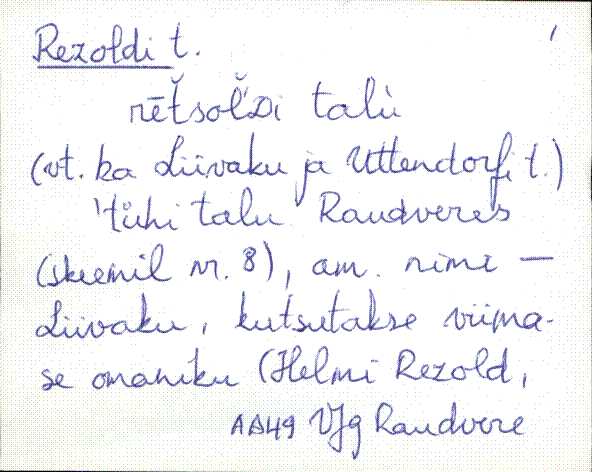 Rezoldi t.
rēt̆sol̆Di talù
(vt. ka Liivaku ja Uttendorfi t.)
'tühi talu Raudveres
(skeemil nr. 8), am. nimi —
Liivaku, kutsutakse viima-
se omaniku (Helmi Rezold,
AB49 VJg Raudvere